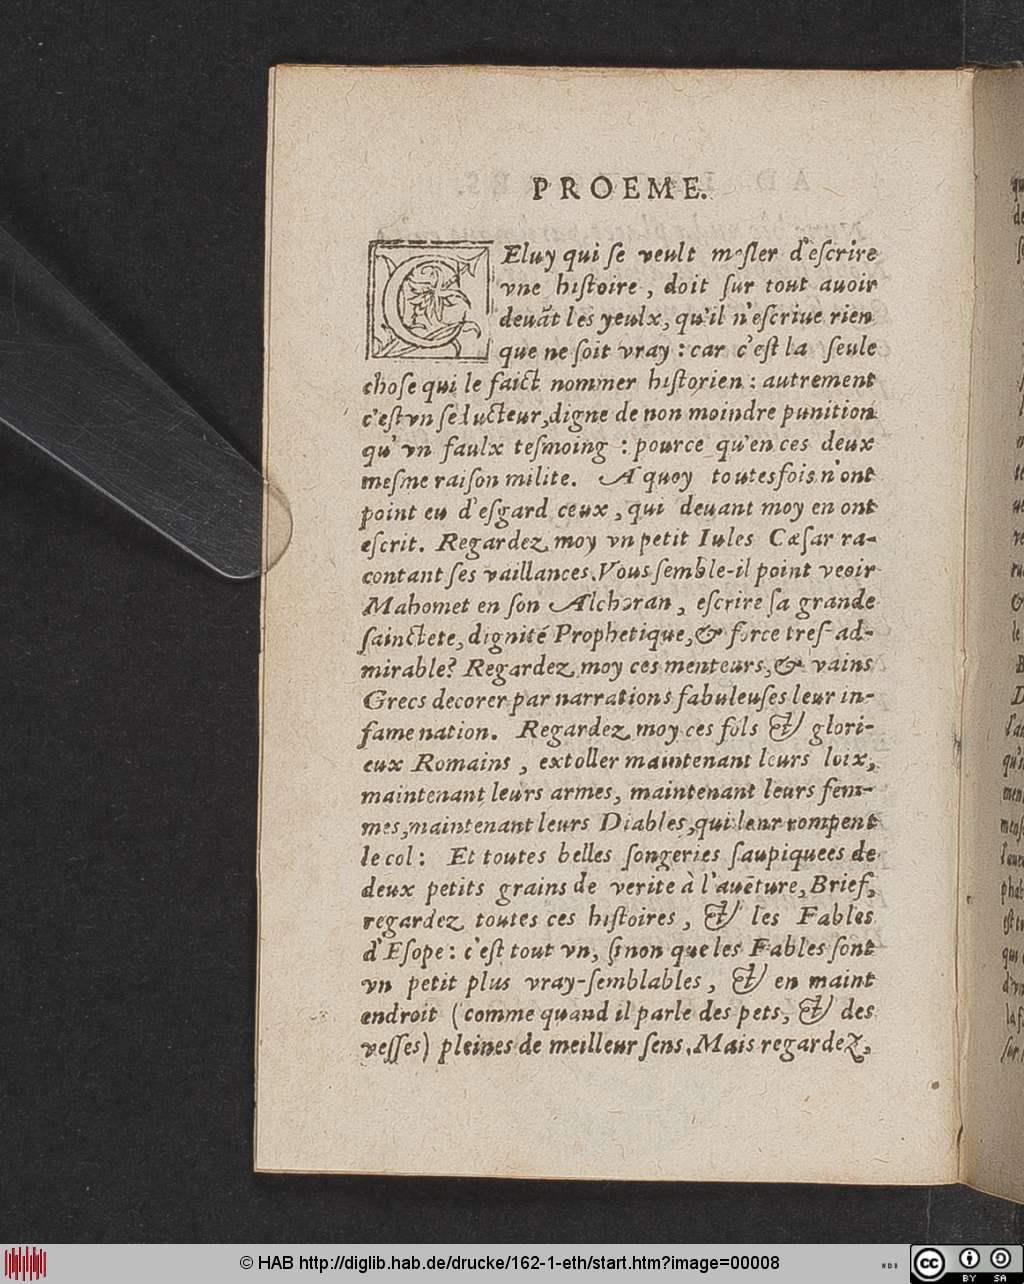 PROEME.
CEluy qui ſe veult meſler d'eſcrire
vne hiſtoire, doit ſur tout auoir
deuāt les yeulx, qu'il n'eſcriue rien
que ne ſoit vray : car c'eſt la ſeule
choſe qui le faict nommer hiſtorien : autrement
c'eſt vn ſeducteur, digne de non moindre punition
qu'vn faulx teſmoing : pource qu'en ces deux
meſme raiſon milite. A quoy toutesfois n'ont
point eu d'eſgard ceux, qui deuant moy en ont
eſcrit. Regardez moy vn petit Iules Cæſar ra-
contant ſes vaillances. Vous ſemble-il point veoir
Mahomet en ſon Alchoran, eſcrire ſa grande
ſainctete, dignité Prophetique, & force treſ-ad-
mirable? Regardez moy ces menteurs, & vains
Grecs decorer par narrations fabuleuſes leur in-
fame nation. Regardez moy ces fols & glori-
eux Romains, extoller maintenant leurs loix,
maintenant leurs armes, maintenant leurs fem-
mes, maintenant leurs Diables, qui leur rompent
le col : Et toutes belles ſongeries ſaupiquees de
deux petits grains de verite à l'auēture, Brief,
regardez toutes ces hiſtoires, & les Fables
d'Eſope : c'eſt tout vn, ſinon que les Fables ſont
vn petit plus vray-ſemblables, & en maint
endroit (comme quand il parle des pets, & des
veſſes) pleines de meilleur ſens. Mais regardez,
© HAB http://diglib.hab.de/drucke/162-1-eth/start.htm?image=00008
WDB
CC BY SA